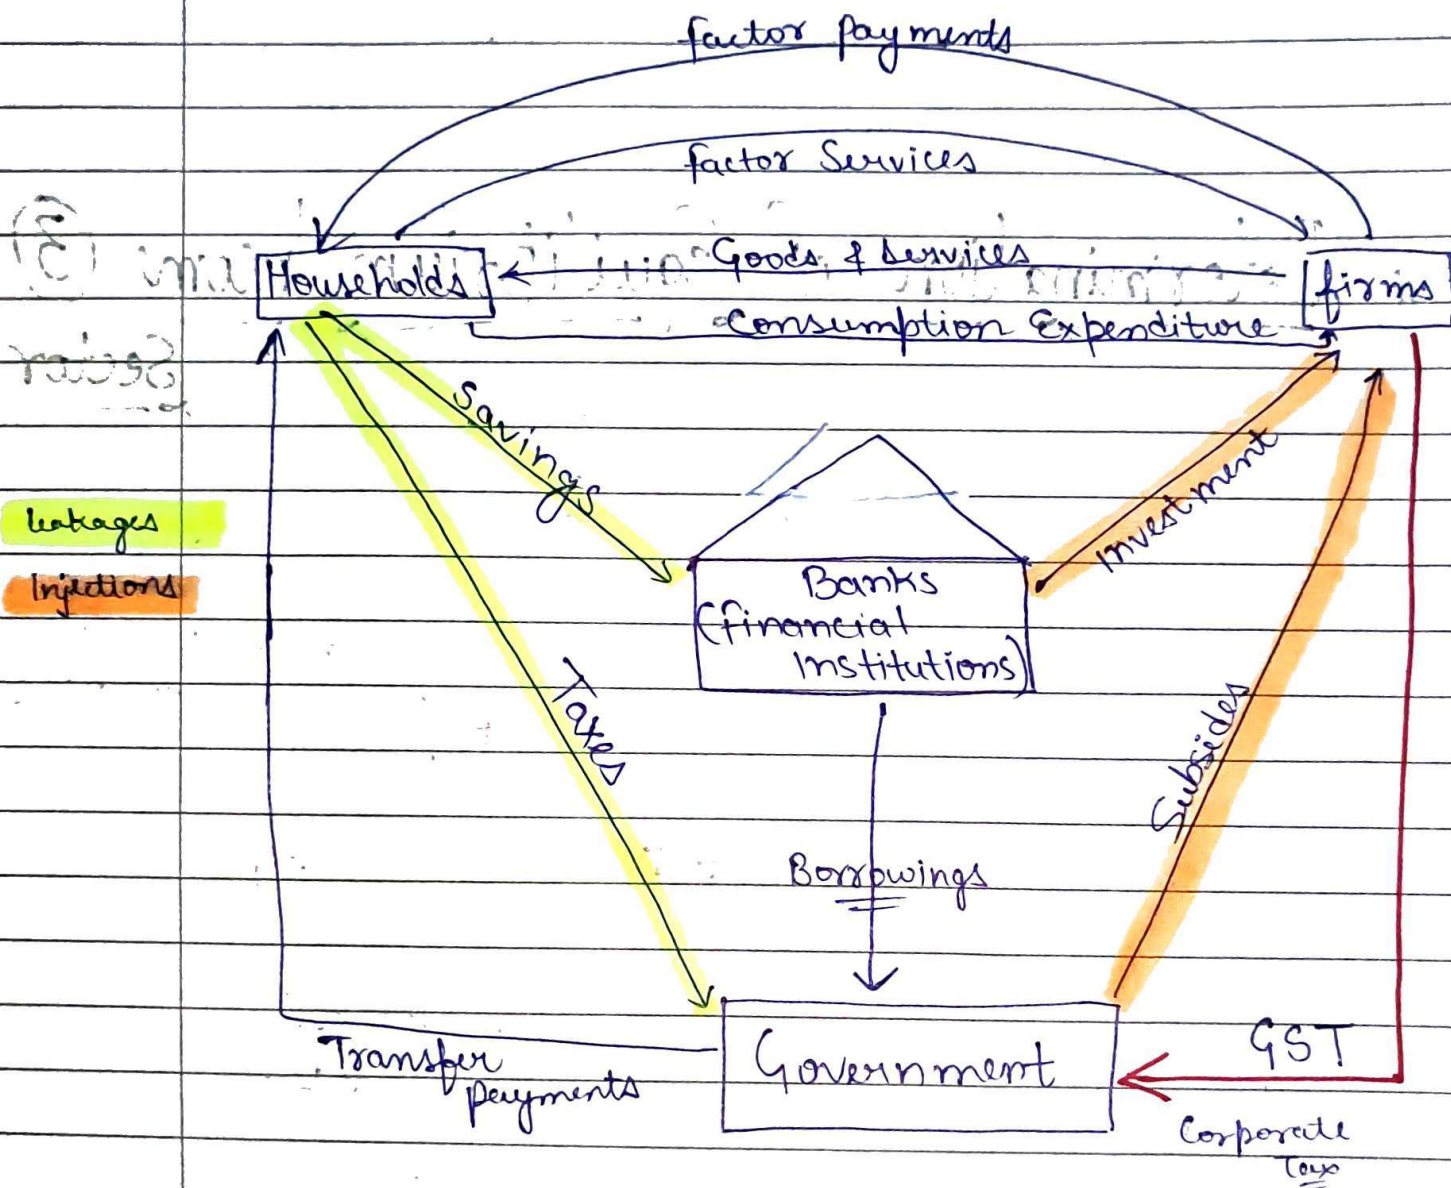 factor payments
factor Services
Goods & Services
Households
firms
Consumption Expenditure
Savings
Investment
leakages
Injections
Banks
(financial
Institutions)
Taxes
Subsides
Borrowings
Transfer
payments
Government
GST
Corporate
Tax
Sector
(3)